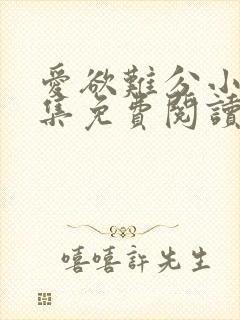 愛欲難分小
集免費閱讀
嘻嘻許先生